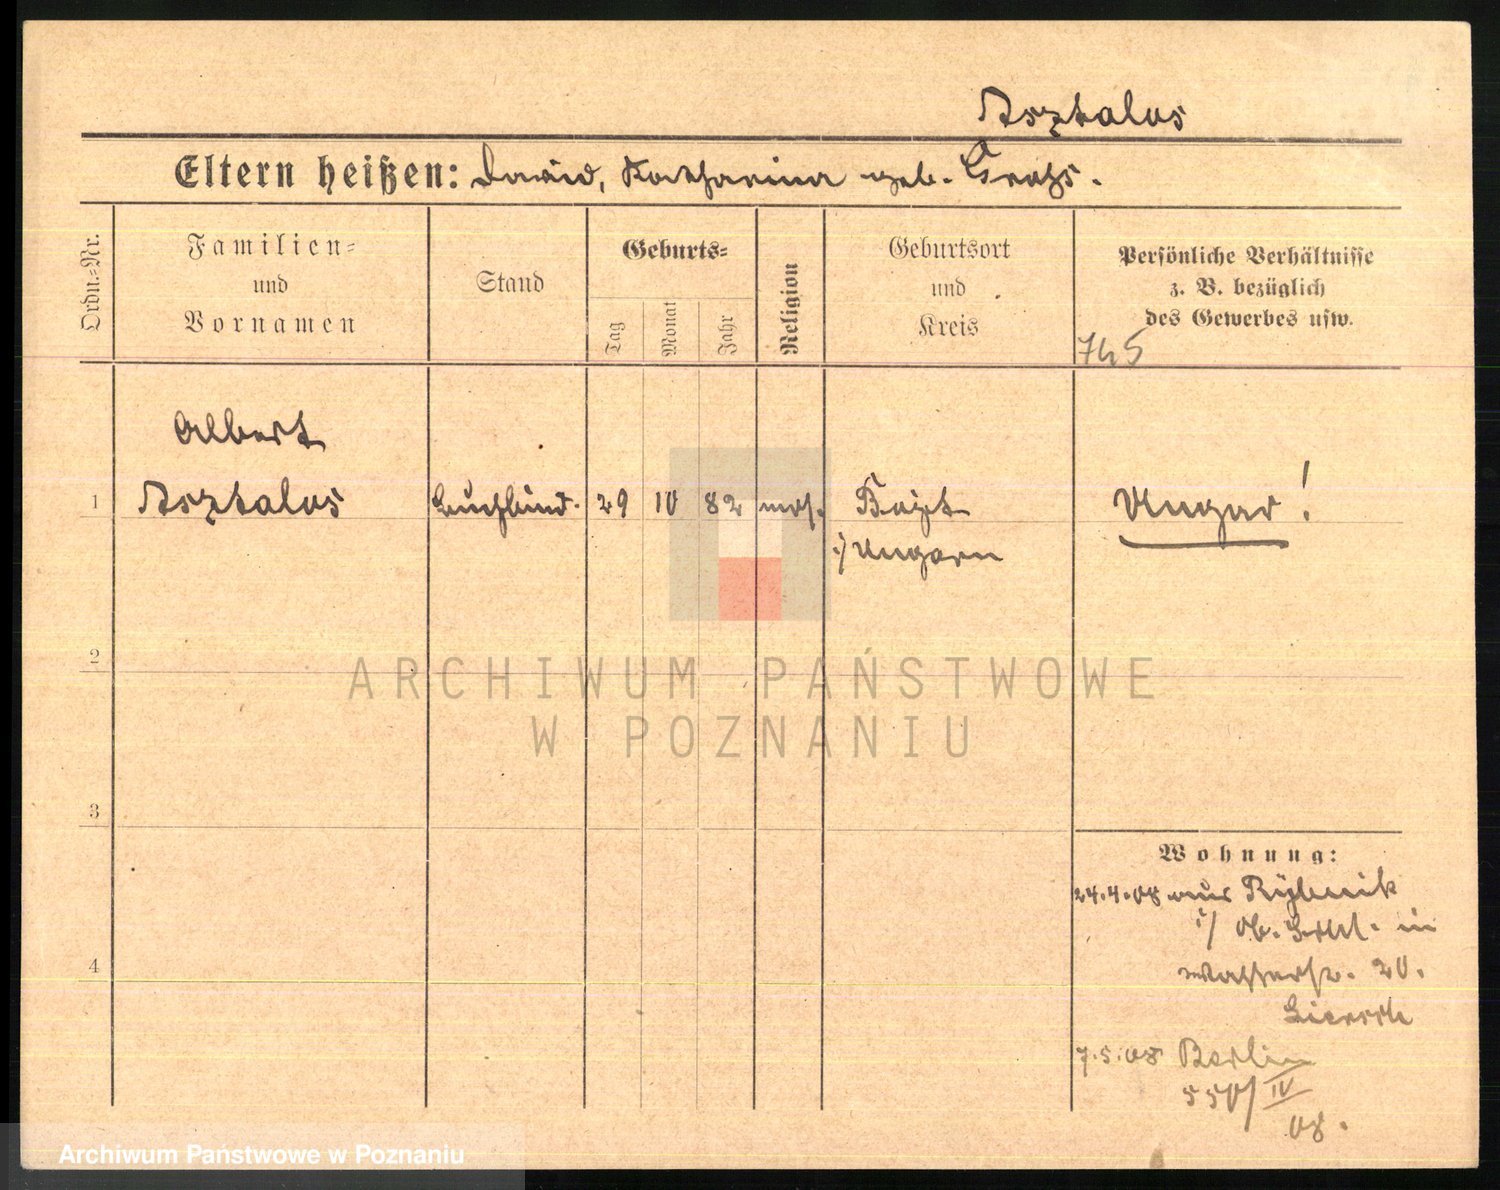 Asztalos
Eltern heißen: David, Katharina geb.
Ordn.-Nr.
Familien-
und
Vornamen
Stand
Geburts-
Tag
Monat
Jahr
Religion
Geburtsort
und
Kreis
Persönliche Verhältnisse
z. B. bezüglich
des Gewerbes usw.
745
Albert
1 Asztalos Buchbind. 29 10 82 mos. Ungar!
i/ Ungarn
2
ARCHIWUM PAŃSTWOWE
W POZNANIU
3
Wohnung:
24.4.08 aus Rybnik
i/ Ob. Schl. in
Wasserstr. 20.
4
7.5.08 Berlin
550/IV
08.
Archiwum Państwowe w Poznaniu